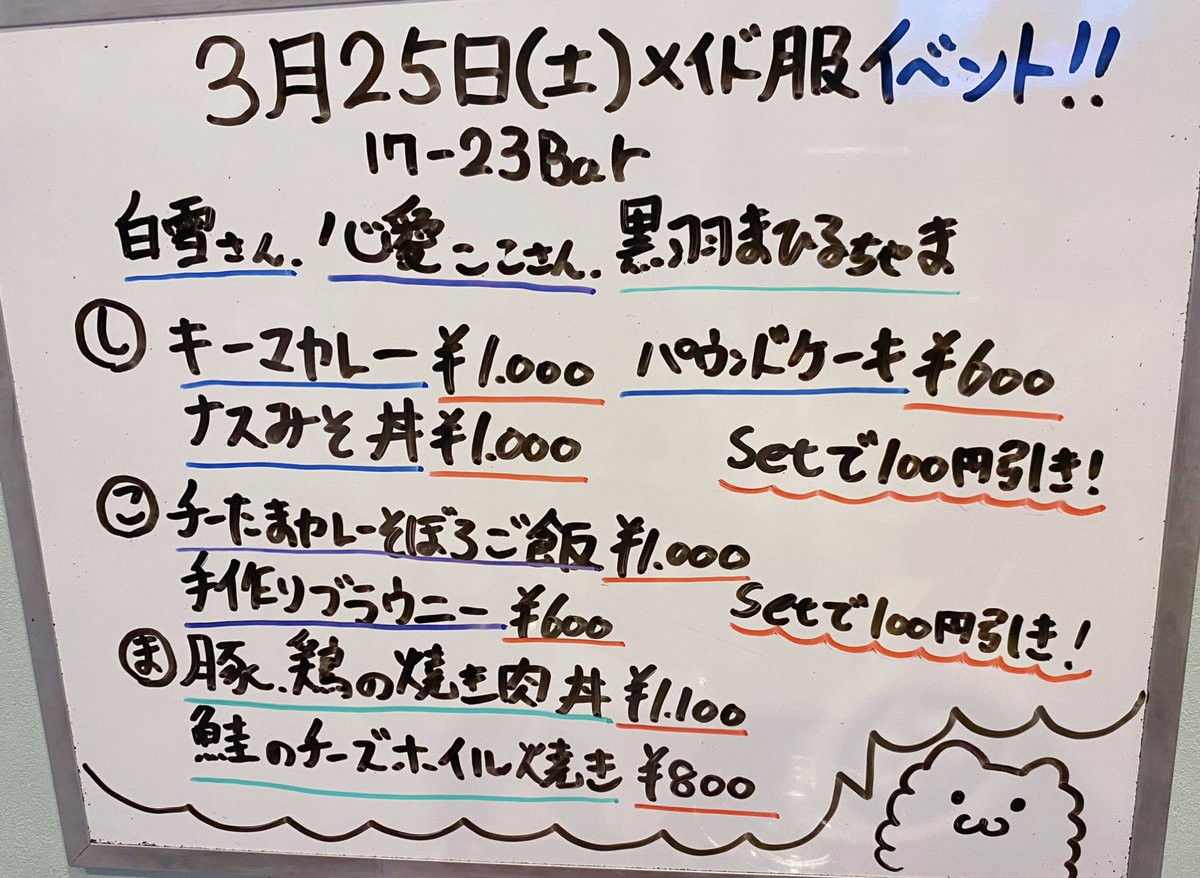 3月25日(土)メイド服イベント!!
17-23Bar
白雪さん. 心愛ここさん. 黒羽まひるちゃま
し キーマカレー ¥1.000 パウンドケーキ ¥600
ナスみそ丼 ¥1.000 Setで100円引き!
こ チーたまカレーそぼろご飯 ¥1.000
手作りブラウニー ¥600 Setで100円引き!
ま 豚.鶏の焼き肉丼 ¥1.100
鮭のチーズホイル焼き ¥800